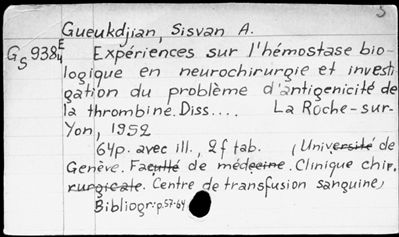 5
Gueukdjian, Sisvan A.
G S 938 E 4 Expériences sur l'hémostase bio-
logique en neurochirurgie et investi
gation du problème d'antigenicité de
la thrombine. Diss.... La Roche-sur-
Yon, 1952
64p. avec ill., 2f tab. (Université de
Genève. Faculté de médecine. Clinique chir.
rurgicale. Centre de transfusion sanguine)
Bibliogr: p.57-64